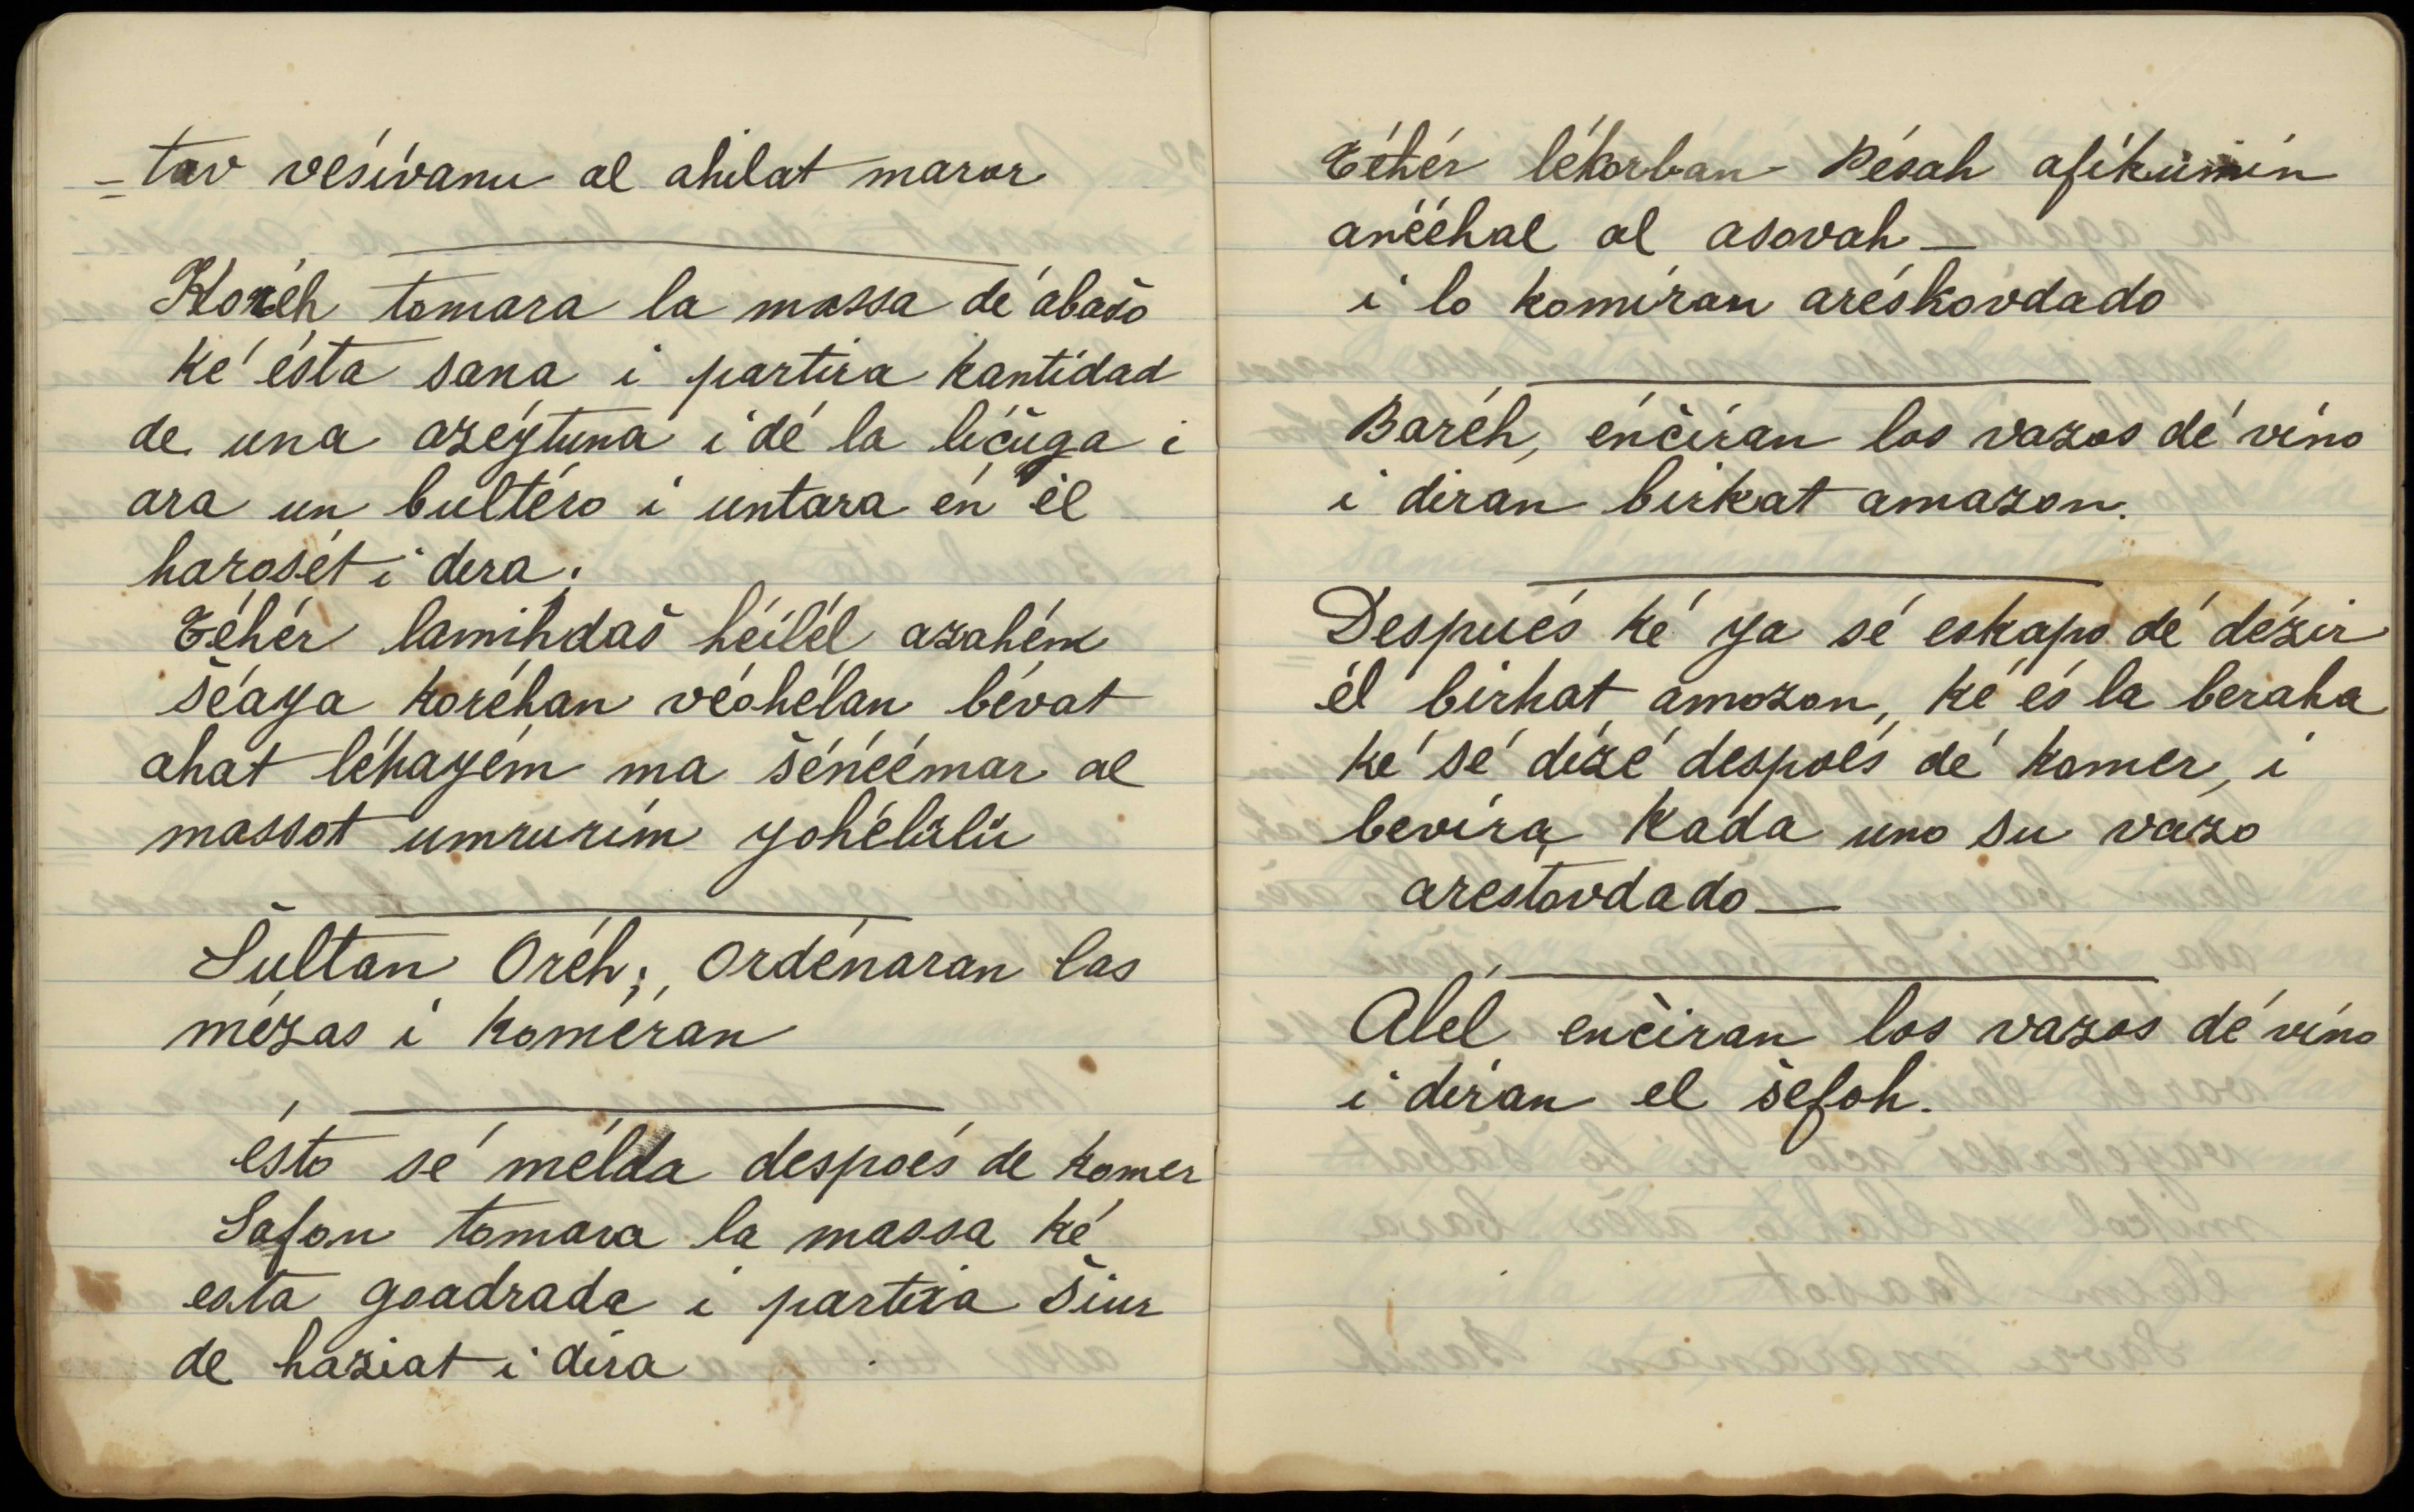 = tav vésívanu al ahilat maror
Koréh tomara la massa dé abašo
ké ésta sana i partira kantidad
de una azéytuna i dé la líčuga i
ara un bultéro i untara én él
harosét i dira;
Zéhér lamihdaš héilél azahém
šéaya koréhan véohélan bévat
ahat léhayém ma šénéémar al
massot umrurim yohélülü
Šultan Oréh; Ordénaran las
mézas i koméran
ésto sé mélda despoés de komer
Safon tomara la massa ké
esta goadrada i partira šiur
de haziat i díra
Zéhér lékorban Pésah afíkümín
anééhal al asovah —
i lo komíran aréskovdado
Baréh, énčíran los vazos dé víno
i diran birkat amazon.
Después ké ya sé eskapo dé dézir
él birhat amazon, ké és la beraha
ké sé dízé despoés dé komer, i
bevíra kada uno su vazo
arestovdado —
Alél enčiran los vazos dé víno
i díran el šefoh.